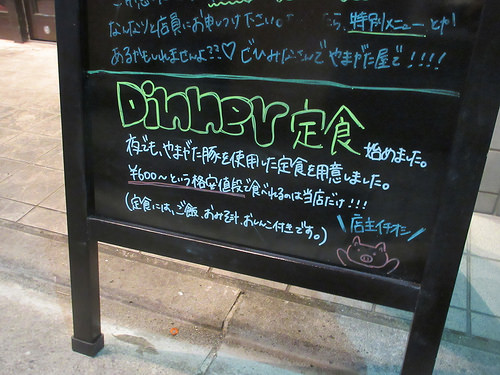 なんなりと店員にお申しつけ下さい。 特別メニューとか!
あるかもしれませんよ??♡ ぜひみなさんでやまがた屋で!!!!
Dinner 定食 始めました。
夜でも、やまがた豚を使用した定食を用意しました。
¥600～という格安値段で食べれるのは当店だけ!!!
(定食には、ご飯、おみそ汁、おしんこ付きです。)
\店主イチオシ/